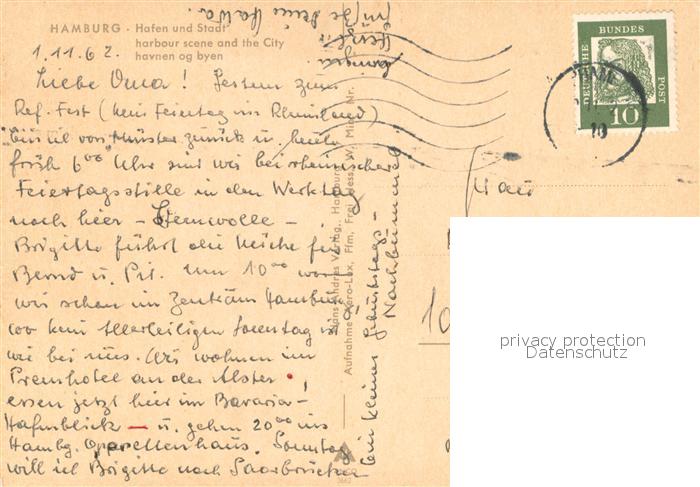 HAMBURG - Hafen und Stadt
harbour scene and the City
havnen og byen
1.11.62.
Liebe Oma! Gestern zum
Ref. Fest (kein Feiertag im Rheinland)
bin ich von Münster zurück u. heute
früh 6⁰⁰ Uhr sind wir bei rheinischer
Feiertagsstille in den Werktag
nach hier -
Brigitte führt die Küche für
Bernd u. Pit. Um 10⁰⁰ waren
wir schon im Zentrum Hamburg
wo kein Allerheiligen Sonntag ist
wie bei uns. Wir wohnen im
Premshotel an der Alster,
essen jetzt hier im Bavaria-
Hafenblick - u. gehen 20⁰⁰ ins
Hambg. Operettenhaus. Sonntag
will ich Brigitte nach Saarbrücken
Ein kleiner Geburtstags-
Nachbummel
Hans Andres Verlag, Hamburg
Aufnahme: Aero-Lux, Ffm, Frei Hess. W. Min. Nr.
DEUTSCHE BUNDESPOST
10
Frau
privacy protection
Datenschutz